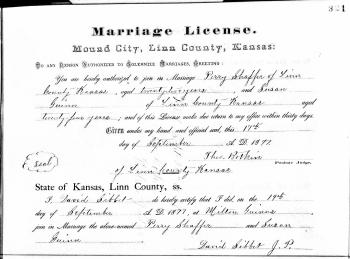 321
Marriage License.
Mound City, Linn County, Kansas:
TO ANY PERSON AUTHORIZED TO SOLEMNIZE MARRIAGES, GREETING:
You are hereby authorized to join in Marriage Perry Shaffer of Linn
County Kansas, aged twenty two years, and Susan
Guinn of Linn County Kansas aged
twenty four years; and of this License make due return to my office within thirty days.
Given under my hand and official seal, this 17th
day of September A.D. 1877.
Seal
Probate Judge.
of Linn County Kansas
State of Kansas, Linn County, ss.
I, David Sibbet do hereby certify that I did, on the 19th
day of September A.D. 1877, at Milton Guinns
join in Marriage the above-named Perry Shaffer and Susan
Guinn
David Sibbet J.P.